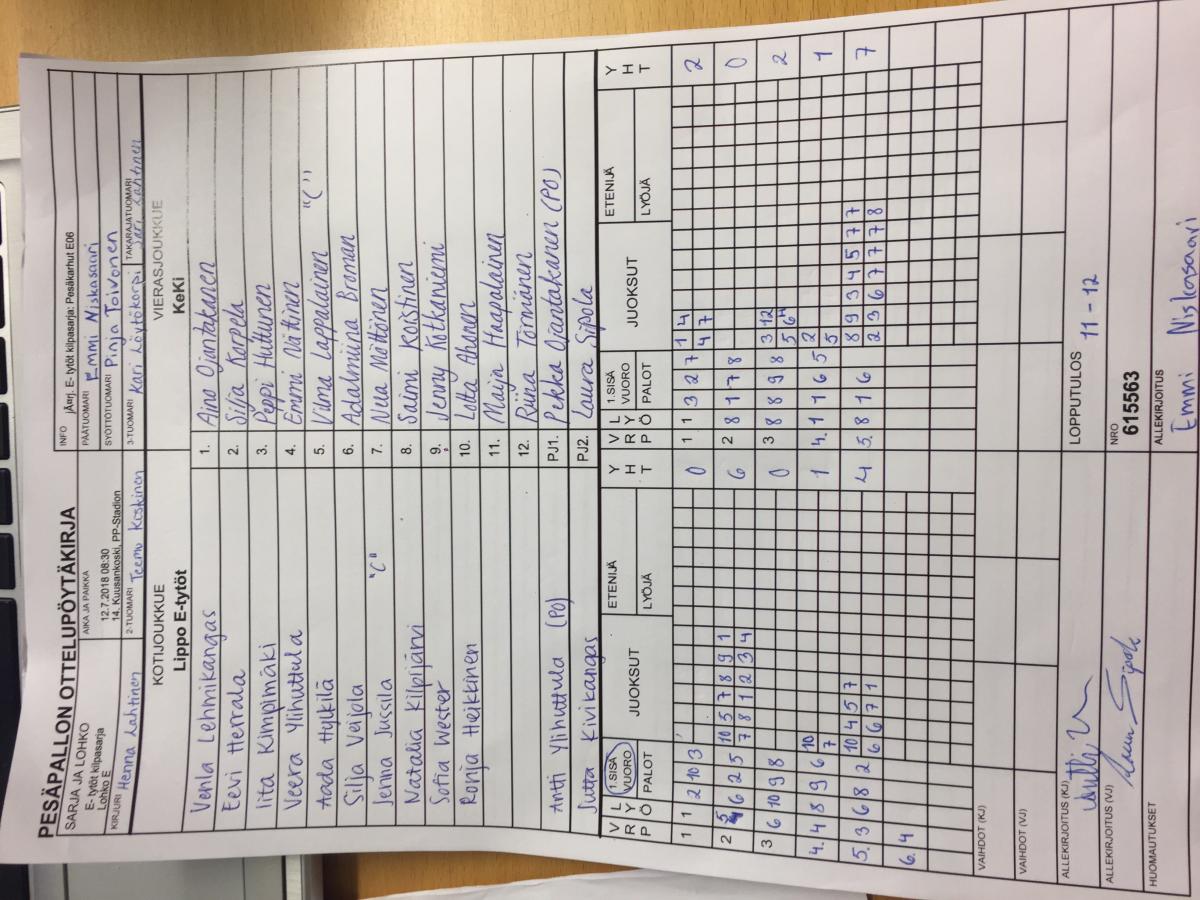 PESÄPALLON OTTELUPÖYTÄKIRJA
SARJA JA LOHKO
E- tytöt kilpasarja
Lohko E
AIKA JA PAIKKA
12.7.2018 08:30
14. Kuusankoski, PP-Stadion
INFO jÄrrj. E- tytöt kilpasarja: Pesäkarhut E06
PÄÄTUOMARI Emmi Niskasaari
SYÖTTÖTUOMARI Pinja Toivonen
KIRJURI Henna Lahtinen 2-TUOMARI Teemu Keskinen 3-TUOMARI Kari Löytökorpi TAKARAJATUOMARI Sari Lahtinen
KOTIJOUKKUE VIERASJOUKKUE
Lippo E-tytöt KeKi
Venla Lehmikangas 1. Aino Ojantakanen
Eevi Herrala 2. Silja Korpela
Iita Kimpimäki 3. Peppi Huttunen
Veera Ylihuttula 4. Emmi Närhinen
Aada Hylkilä 5. Vilma Lappalainen "C"
Silja Veijola 6. Adalmiina Broman
Jenna Jussila "C" 7. Nea Möttönen
Natalia Kilpijärvi 8. Saimi Koistinen
Sofia Wester 9. Jenny Kitkaniemi
Ronja Heikkinen 10. Lotta Ahonen
11. Maija Haapalainen
12. Riina Törmänen
Antti Ylihuttula (PO) PJ1. Pekka Ojantakanen (PO)
Jutta Kivikangas PJ2. Laura Sipola
V R P L Y Ö 1.SISÄ VUORO PALOT JUOKSUT ETENIJÄ LYÖJÄ Y H T V R P L Y Ö 1.SISÄ VUORO PALOT JUOKSUT ETENIJÄ LYÖJÄ Y H T
1 1 2 10 3 0 1 1 3 2 7 1 4 2
4 7
2 5 6 2 5 10 5 7 8 9 1 6 2 8 1 7 8 0
7 8 1 2 3 4
3 6 10 9 8 0 3 8 8 9 8 3 12 2
5 6
4. 4 8 9 6 10 1 4. 1 1 6 5 2 1
7 5
5. 3 6 8 2 10 4 5 7 4 5. 8 1 6 8 9 3 4 5 7 7 7
6 6 7 1 2 3 6 7 7 7 8
6. 4
VAIHDOT (KJ)
VAIHDOT (VJ)
ALLEKIRJOITUS (KJ) LOPPUTULOS 11 - 12
ALLEKIRJOITUS (VJ) NRO
615563
HUOMAUTUKSET ALLEKIRJOITUS
Emmi Niskasaari